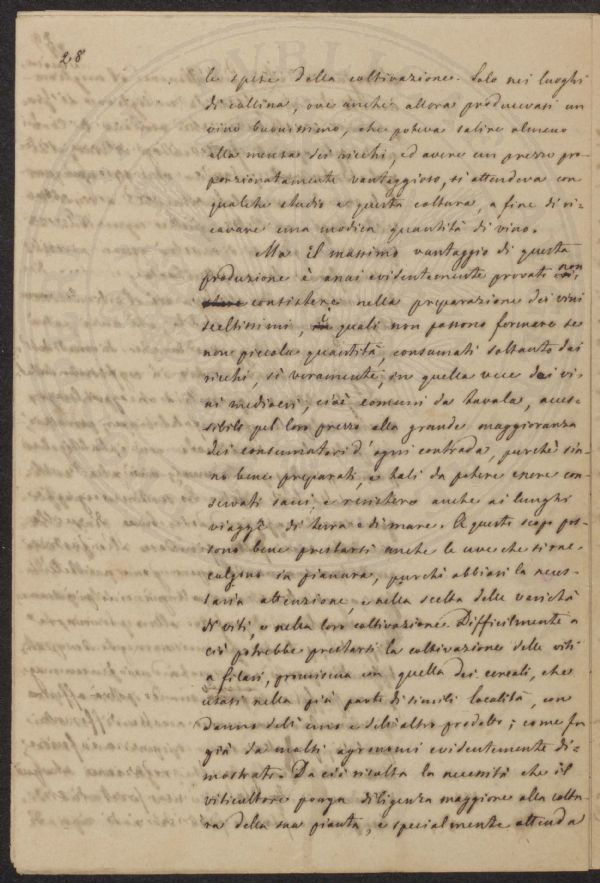 28
le spese della coltivazione. Solo nei luoghi
di collina, ove anche allora producevasi un
vino buonissimo, che poteva salire almeno
alla mensa dei ricchi, ed avere un prezzo pro=
porzionatamente vantaggioso, si attendeva con
qualche studio a questa coltura, a fine di ri=
cavare una modica quantità di vino.
Ma il massimo vantaggio di questa
produzione è assai evidentemente provato non
consistere nella preparazione dei vini
sceltissimi, i quali non possono formare se
non piccola quantità, consumati soltanto dai
ricchi, sì veramente in quella vece dei vi=
ni mediocri, cioè comuni da tavola, acces=
sibili pel loro prezzo alla grande maggioranza
dei consumatori d'ogni contrada, purchè sia=
no bene preparati, e tali da potere essere con
servati sani, e resistere anche ai lunghi
viaggi di terra e di mare. A questo scopo pos=
sono bene prestarsi anche le uve che si rac=
colgono in pianura, purchè abbiasi la neces=
saria attenzione, e nella scelta delle varietà
di viti, e nella loro coltivazione. Difficilmente a
ciò potrebbe prestarsi la coltivazione delle viti
a filari, promiscua con quella dei cereali, che
usasi nella più parte di simili località, con
danno dell'uno e dell'altro prodotto; come fu
già da molti agronomi evidentemente di=
mostrato. Da ciò risulta la necessità che il
viticultore ponga diligenza maggiore alla coltu=
ra della sua pianta, e specialmente attenda